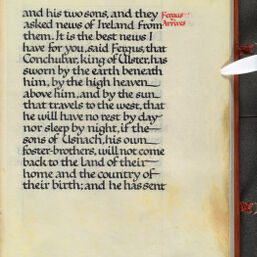 and his two sons, and they
asked news of Ireland from
them. It is the best news I
have for you, said Fergus, that
Conchubar, king of Ulster, has
sworn by the earth beneath
him, by the high heaven
above him, and by the sun
that travels to the west, that
he will have no rest by day
nor sleep by night, if the
sons of Usnach, his own
foster-brothers, will not come
back to the land of their
home and the country of
their birth; and he has sent
Fergus
arrives